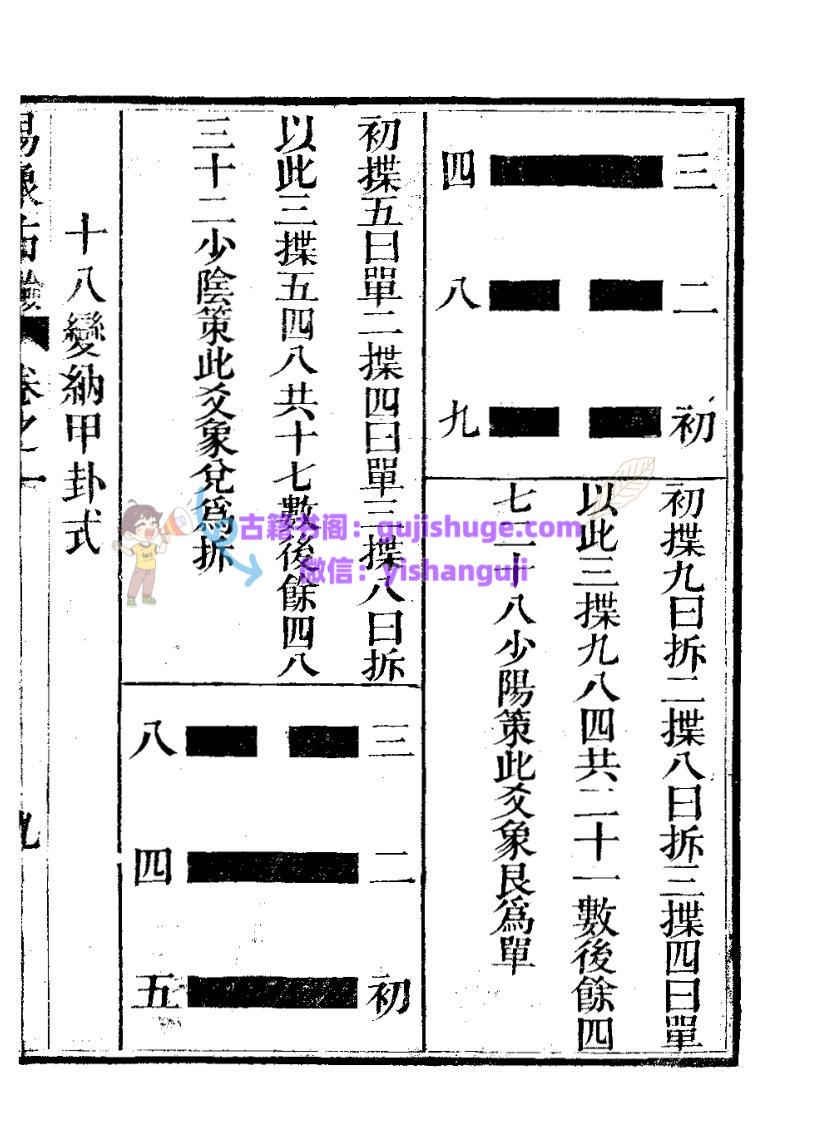 三 四
二 八
初 九
初揲九曰拆二揲八曰拆三揲四曰單
以此三揲九八四共二十一數後餘四
七二十八少陽策此爻象艮爲單
初揲五曰單二揲四曰單三揲八曰拆
以此三揲五四八共十七數後餘四八
三十二少陰策此爻象兌爲拆
三 八
二 四
初 五
十八變納甲卦式
卷之一
九
古籍书阁：gujishuge.com
微信：yishanguji